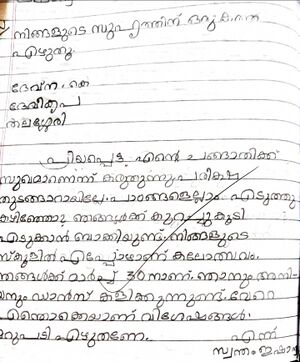 നിങ്ങളുടെ സുഹൃത്തിന് ഒരു കത്ത്
എഴുതൂ.
ദേവ്ന. കെ
ദേവീകൃപ
തലശ്ശേരി
പ്രിയപ്പെട്ട എന്റെ ചങ്ങാതിക്ക്
സുഖമാണെന്ന് കരുതുന്നു. പരീക്ഷ
തുടങ്ങാറായില്ലേ. പാഠങ്ങളെല്ലാം എടുത്തു
കഴിഞ്ഞോ? ഞങ്ങൾക്ക് കുറച്ചുകൂടി
എടുക്കാൻ ബാക്കിയുണ്ട്. നിങ്ങളുടെ
സ്കൂളിൽ എപ്പോഴാണ് കലോത്സവം.
ഞങ്ങൾക്ക് മാർച്ച് 30 നാണ്. ഞാനും അനി-
യനും ഡാൻസ് കളിക്കുന്നുണ്ട്. വേറെ
എന്തൊക്കെയാണ് വിശേഷങ്ങൾ
മറുപടി എഴുതണേ.
എന്ന്
സ്വന്തം